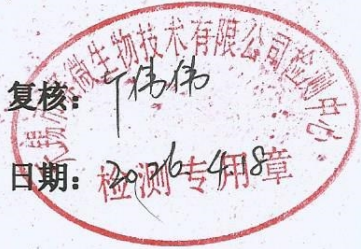 微生物技术有限公司检测中心
复核：丁伟伟
日期：2026.4.18
检测专用章